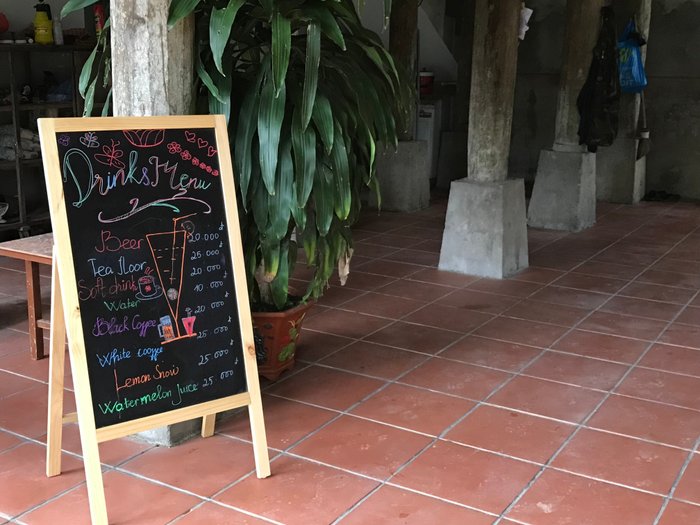 Drinks Menu
Beer 20 000 đ
Tea floor 25 000 đ
Soft drink 20 000 đ
Water 10 000 đ
Black Coffee 20 000 đ
White coffee 25 000 đ
Lemon Snow 25 000 đ
Watermelon Juice 25 000 đ